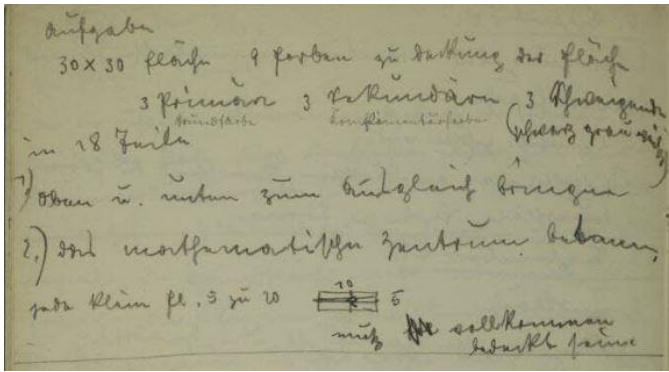 Aufgabe
30 x 30 fläche 9 farben zu deckung der fläche
3 Primäre 3 Sekundäre 3 Schweigende
Grundfarbe Komplementärfarbe (schwarz grau weis)
in 18 Teile
1) oben u. unten zum Ausgleich bringen
2.) das mathematische Zentrum betonen,
jede kleine fl. 5 zu 10
10
5
muss vollkommen
bedeckt sein